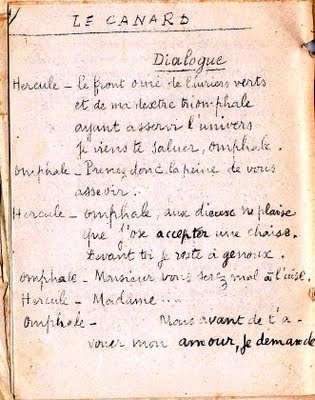 LE CANARD
Dialogue
Hercule - le front orné de lauriers verts
et de ma dextre triomphale
ayant asservi l'univers
je viens te saluer, omphale.
omphale - Prenez donc la peine de vous
asseoir.
Hercule - omphale, aux dieux ne plaise
que j'ose accepter une chaise.
Devant toi je reste à genoux.
omphale - Monsieur vous serez mal à l'aise.
Hercule - Madame...
omphale - Mais avant de t'a-
vouer mon amour, je demande